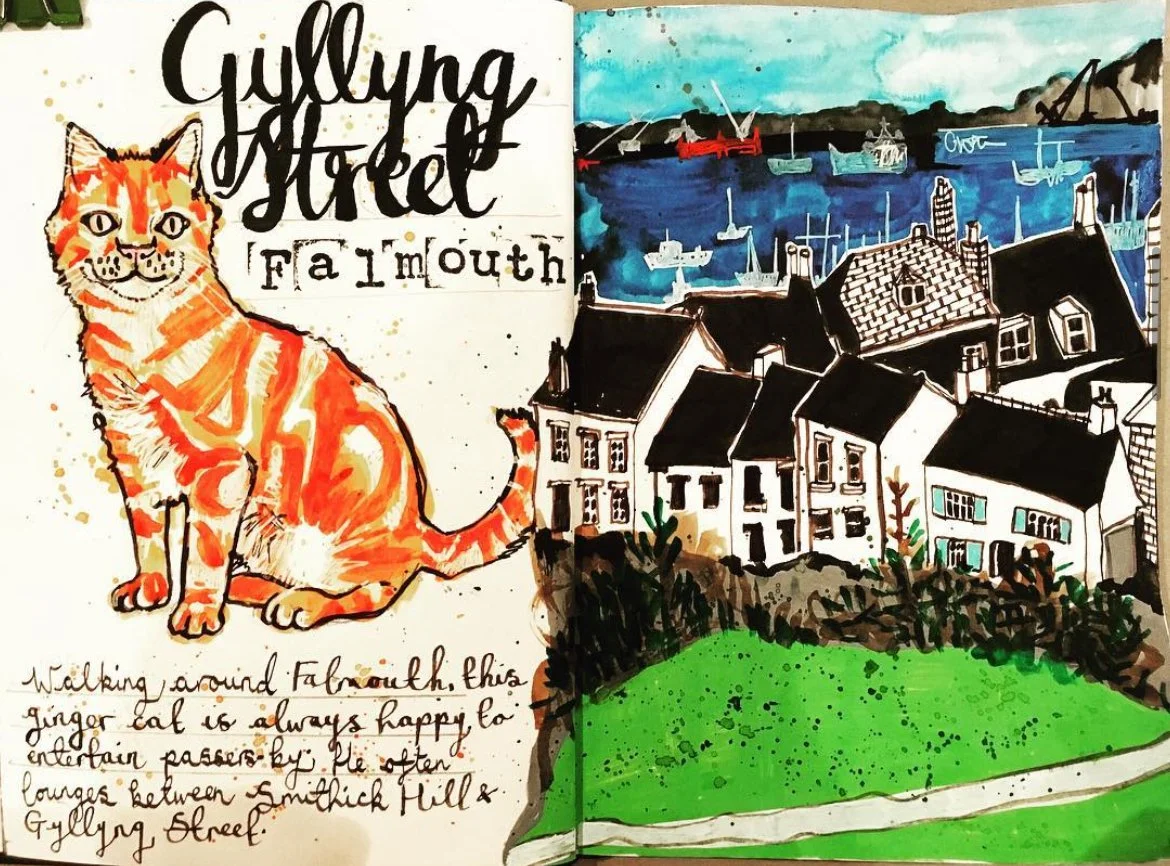 Gyllyng
Street
Falmouth
Walking around Falmouth, this
ginger cat is always happy to
entertain passers-by. He often
lounges between Smithick Hill &
Gyllyng Street.